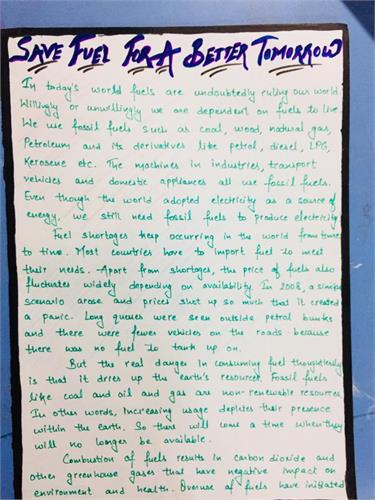 SAVE FUEL FOR A BETTER TOMORROW
In today's world fuels are undoubtedly ruling our world.
Willingly or unwillingly we are dependent on fuels to live.
We use fossil fuels such as coal, wood, natural gas,
Petroleum and its derivatives like petrol, diesel, LPG,
Kerosene etc. The machines in industries, transport
vehicles and domestic appliances all use fossil fuels.
Even though the world adopted electricity as a source of
energy, we still need fossil fuels to produce electricity.
Fuel shortages keep occurring in the world from time
to time. Most countries have to import fuel to meet
their needs. Apart from shortages, the price of fuels also
fluctuates widely depending on availability. In 2008, a
scenario arose and prices shot up so much that it created
a panic. Long queues were seen outside petrol bunks
and there were fewer vehicles on the roads because
there was no fuel to tank up on.
But the real danger in consuming fuel thoughtlessly
is that it dries up the earth's resources. Fossil fuels
like coal and oil and gas are non-renewable resources.
In other words, increasing usage depletes their presence
within the earth. So there will come a time when they
will no longer be available.
Combustion of fuels results in carbon dioxide and
other greenhouse gases that have negative impact on
environment and health. Overuse of fuels have initiated